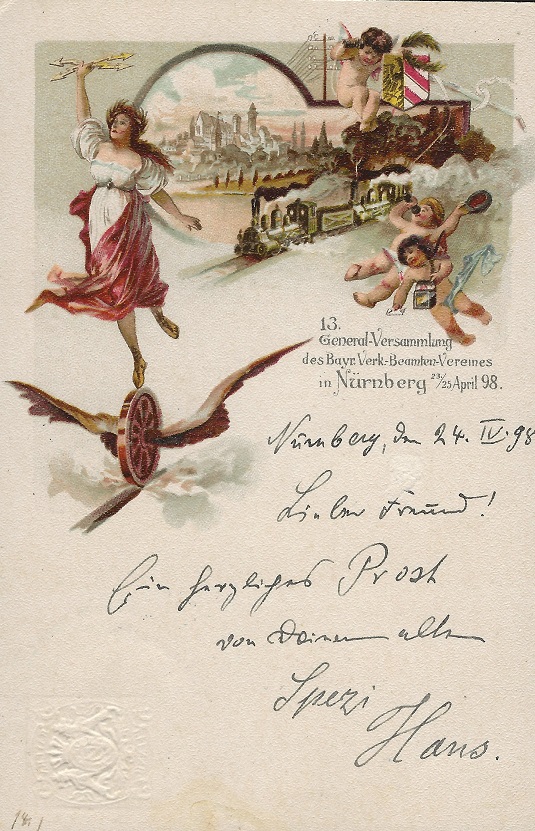 13.
General-Versammlung
des Bayr. Verk.-Beamten-Vereines
in Nürnberg 23./25 April 98.
Nürnberg, den 24. IV. 98
Lieber Freund!
Ein herzliches Prost
von Deinem alten
Spezi
Hans.